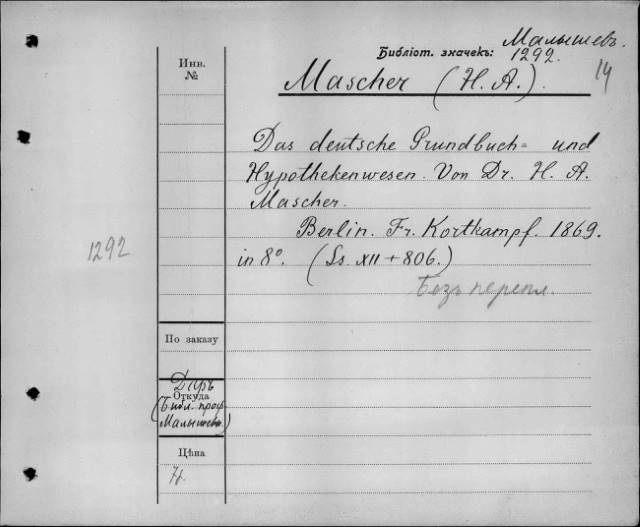 Малышевъ.
Библіот. значекъ: 1292.
14
Инв.
№
Mascher (H. A.).
Das deutsche Grundbuch= und
Hypothekenwesen. Von Dr. H. A.
Mascher.
Berlin. Fr. Kortkampf. 1869.
in 8º. (Ss. XII + 806.)
Безъ перепл.
1292
По заказу
Даръ
Откуда
(Библ. проф.
Малышева)
Цѣна